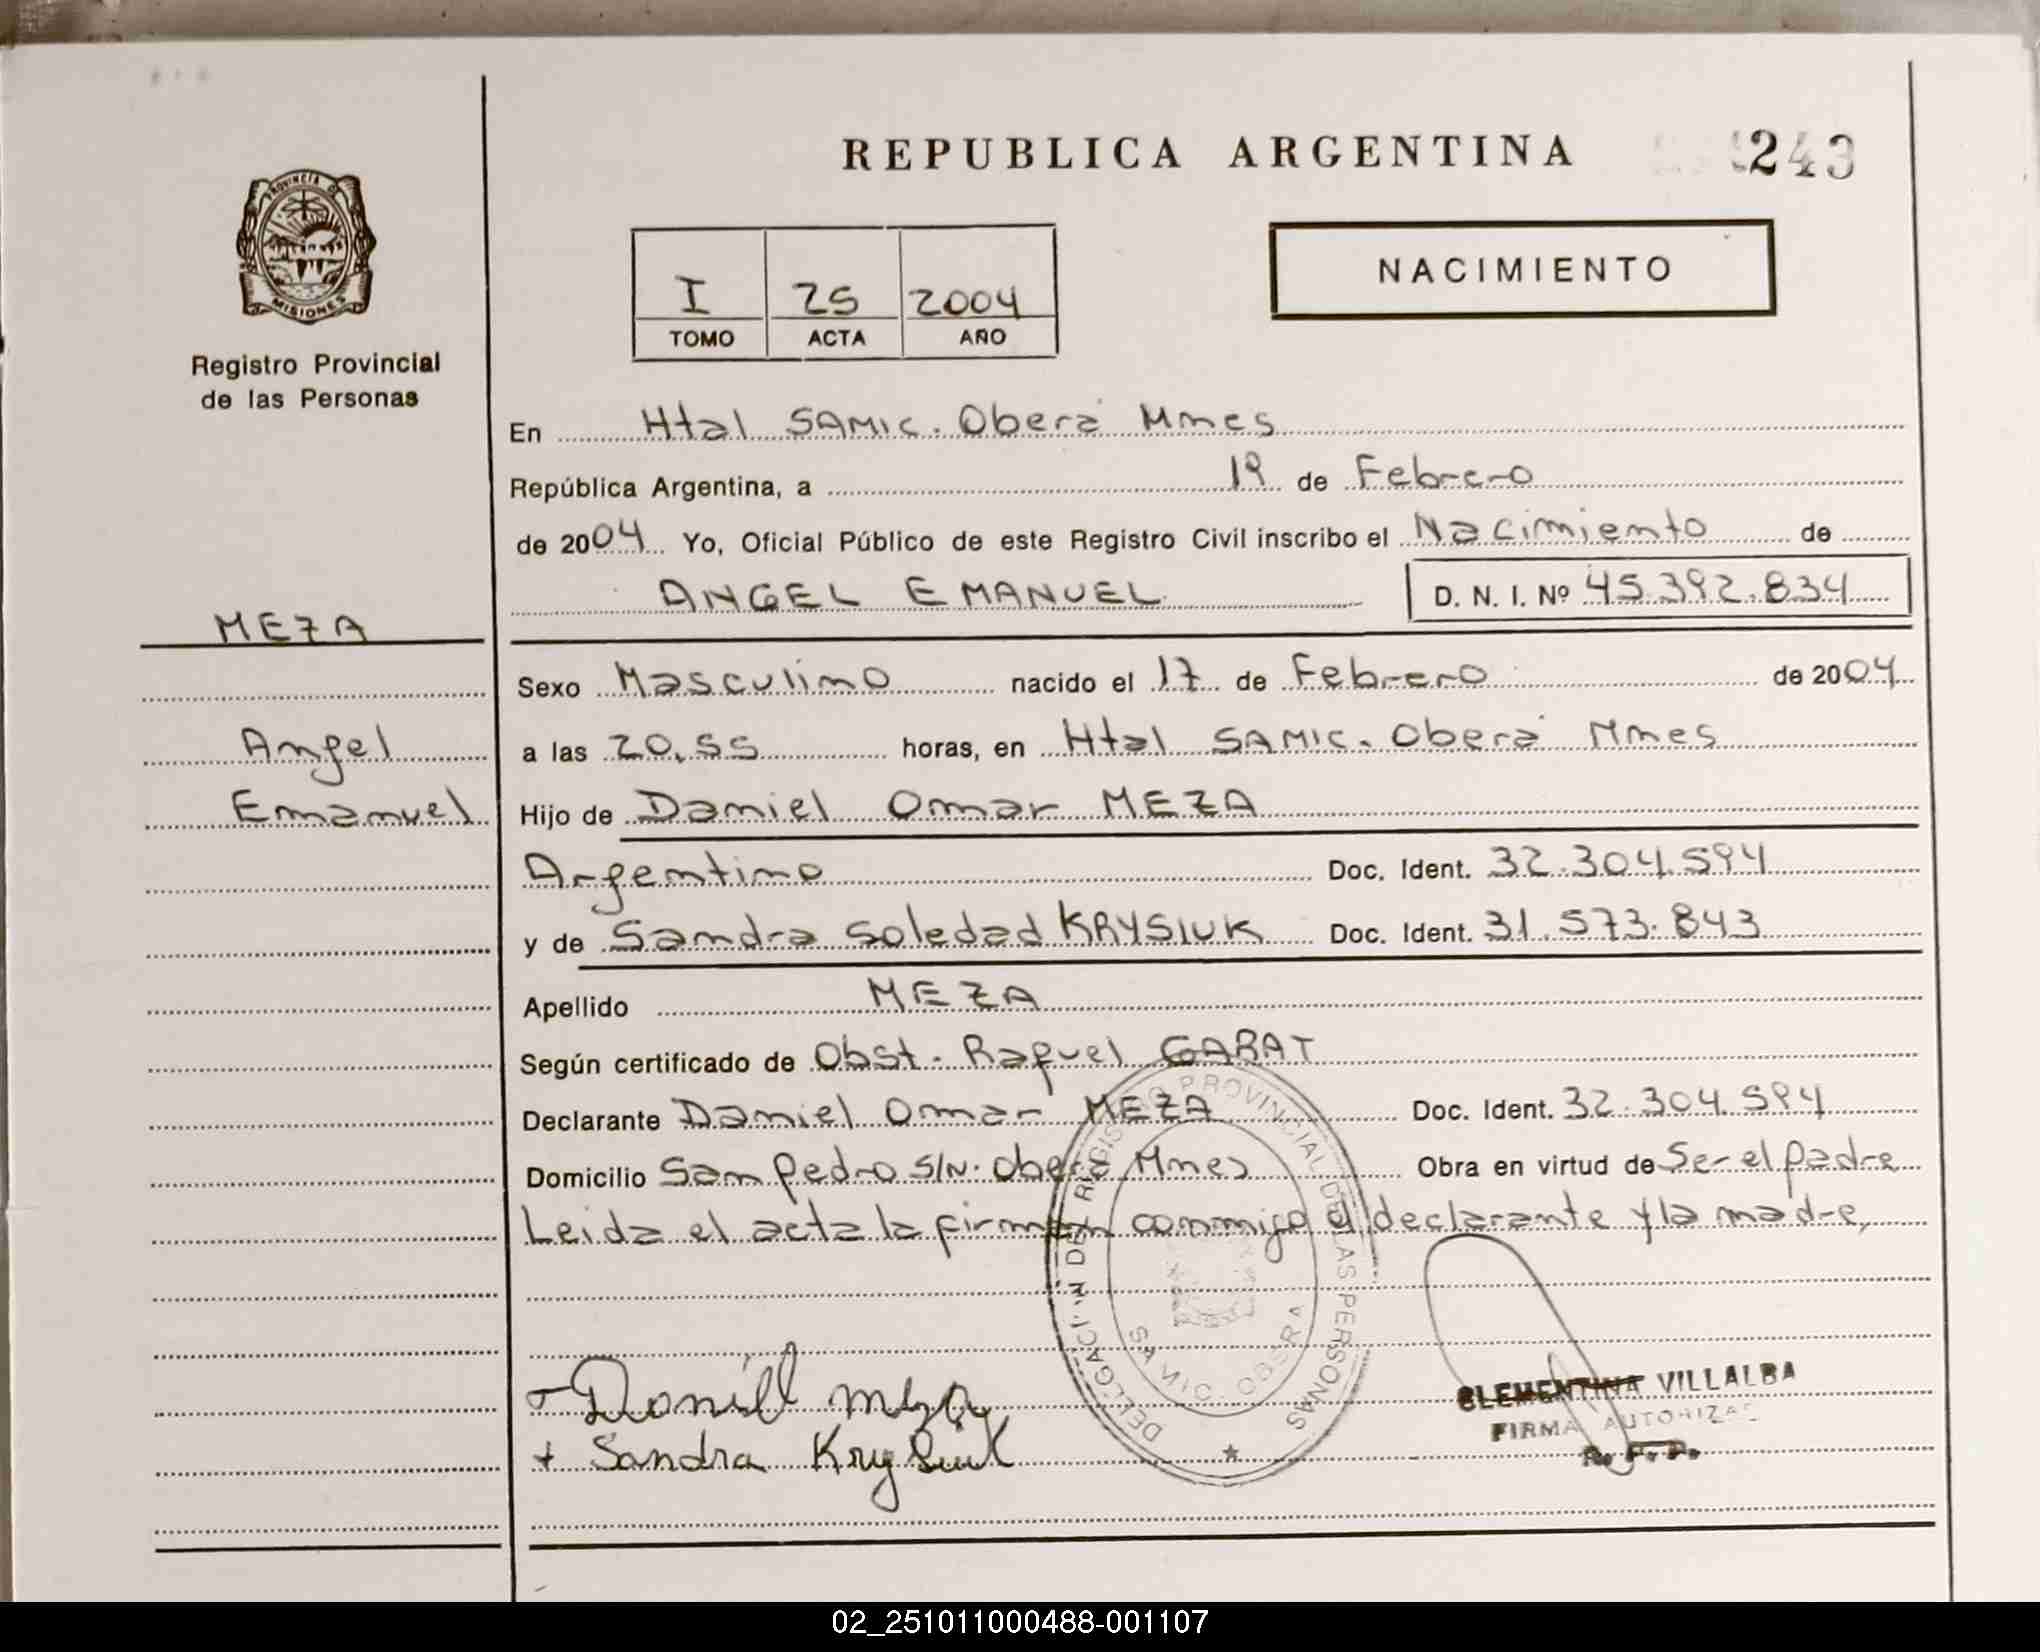 REPUBLICA ARGENTINA
243
PROVINCIA DE MISIONES
Registro Provincial
de las Personas
I 25 2004
TOMO ACTA AÑO
NACIMIENTO
En Htal SAMIC. Oberá Mnes
República Argentina, a 19 de Febrero
de 2004 Yo, Oficial Público de este Registro Civil inscribo el Nacimiento de
ANGEL EMANUEL D. N. I. Nº 45.392.834
MEZA
Sexo Masculino nacido el 17 de Febrero de 2004
Angel
a las 20,55 horas, en Htal SAMIC. Oberá Mnes
Emanuel
Hijo de Daniel Omar MEZA
Argentino Doc. Ident. 32.304.594
y de Sandra Soledad KRYSIUK Doc. Ident. 31.573.843
Apellido MEZA
Según certificado de Obst. Raquel GARAT
Declarante Daniel Omar MEZA Doc. Ident. 32.304.594
Domicilio San Pedro S/N. Oberá Mnes Obra en virtud de Ser el padre
Leida el acta la firman conmigo el declarante y la madre,
DELEGACION DEL REGISTRO PROVINCIAL DE LAS PERSONAS
SAMIC. OBERA
Daniel Meza
+ Sandra Krysiuk
CLEMENTINA VILLALBA
FIRMA AUTORIZADA
R. P. P.
02_251011000488-001107